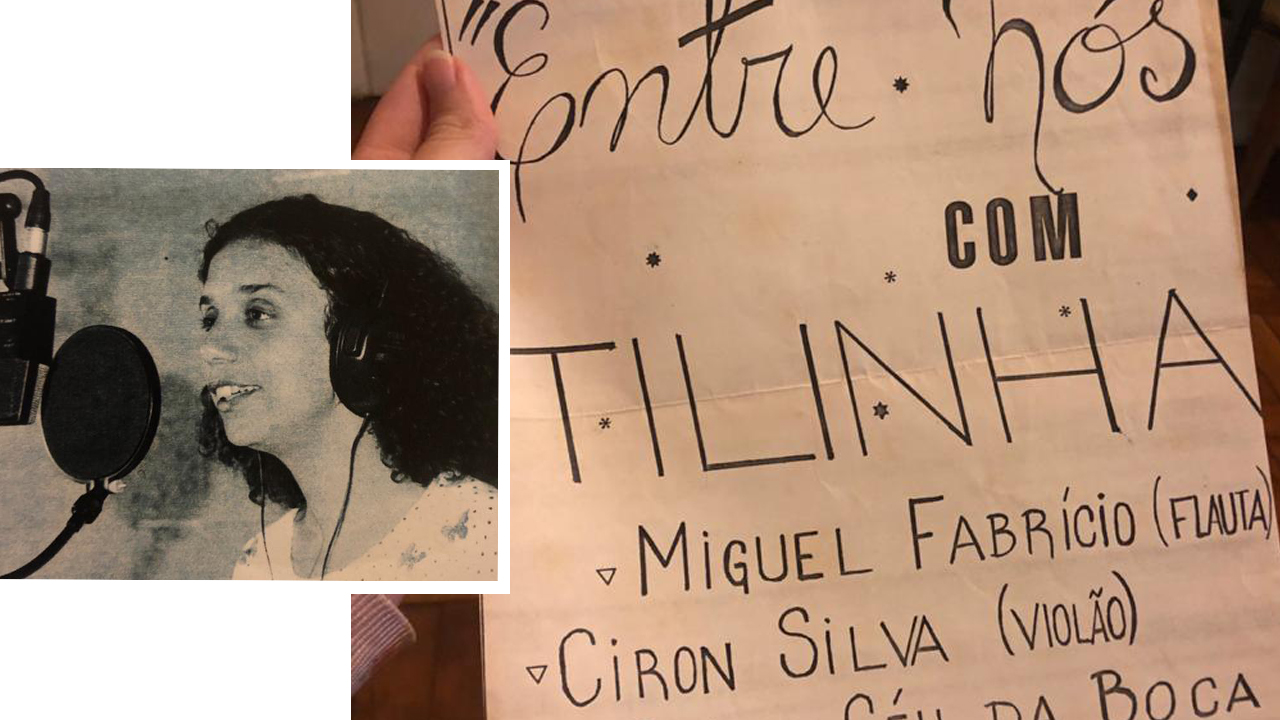 "Entre nós
COM
TILINHA
MIGUEL FABRÍCIO (FLAUTA)
CIRON SILVA (VIOLÃO)
CÉU DA BOCA